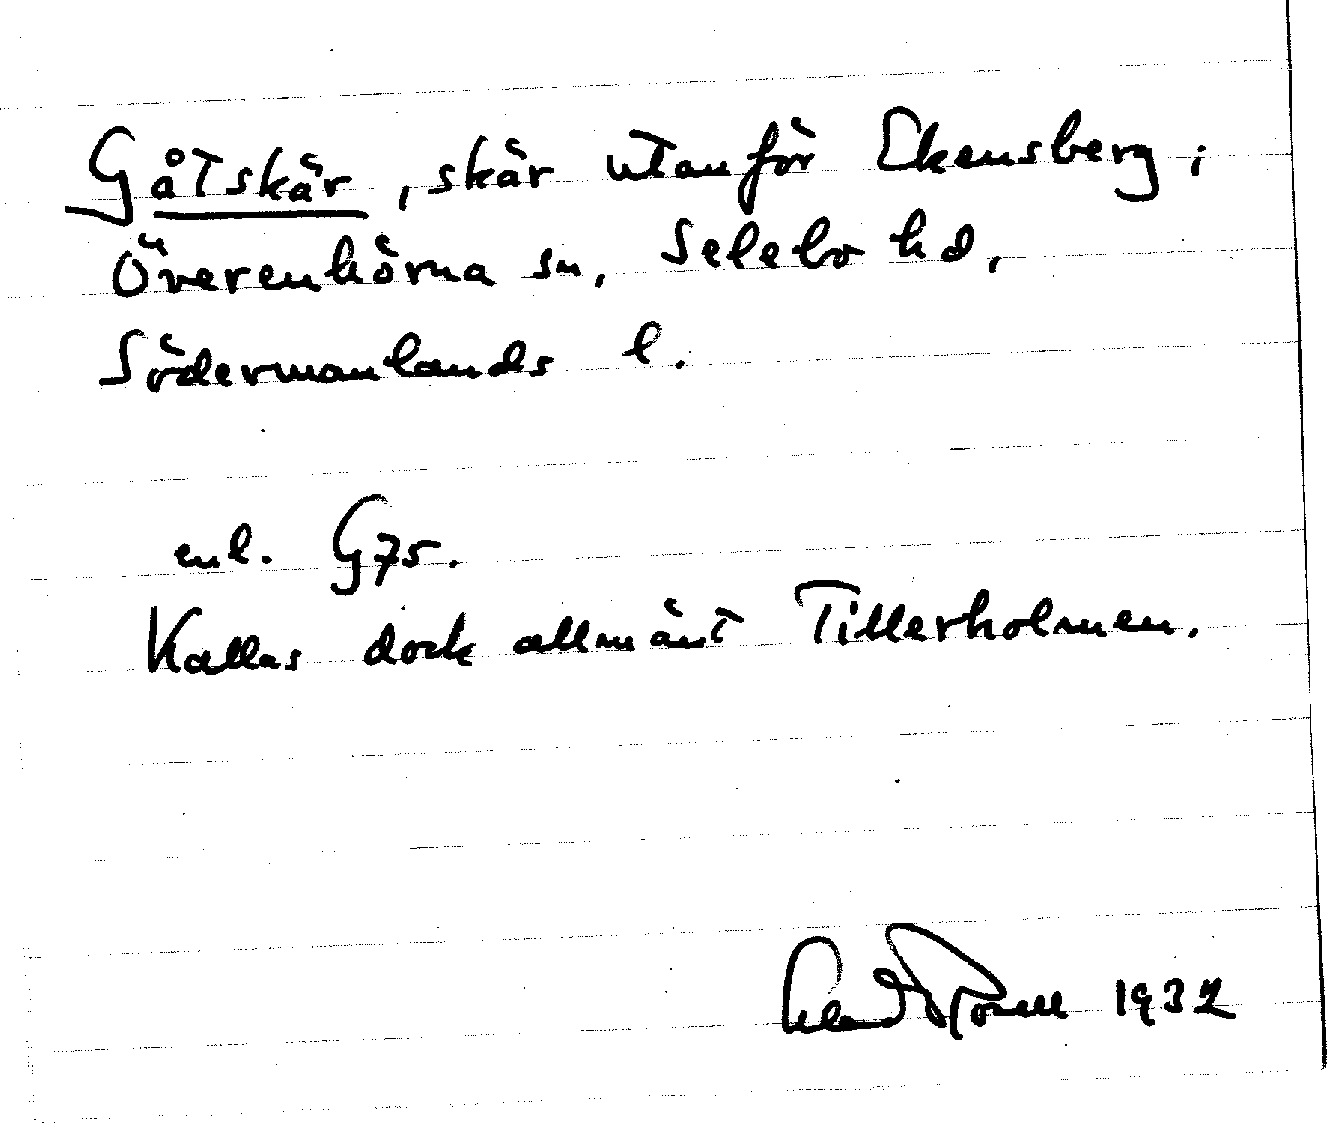 Gåtskär, skär utanför Ekensberg i
Överenhörna sn, Selebo hd,
Södermanlands l.
enl. G75.
Kallas dock allmänt Tillerholmen.
1932